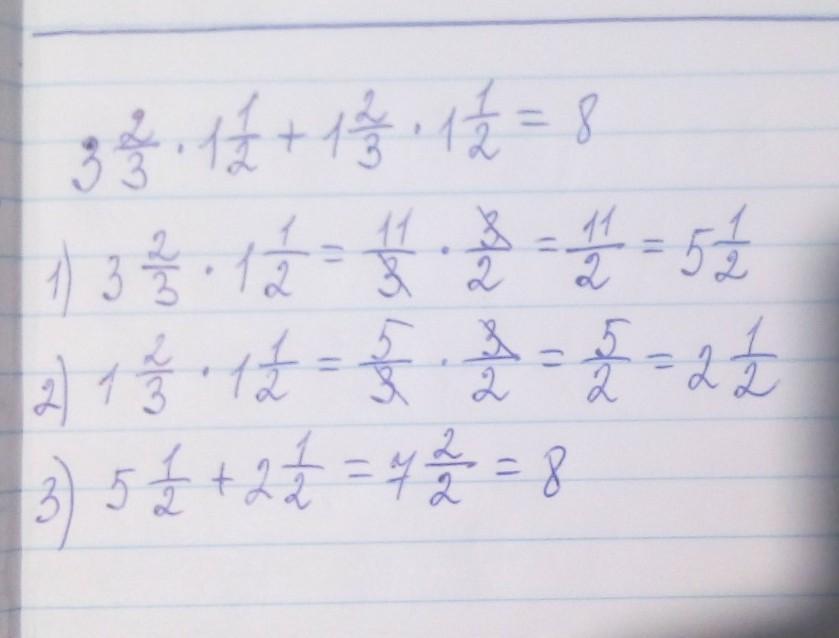 3 2/3 · 1 1/2 + 1 2/3 · 1 1/2 = 8
1) 3 2/3 · 1 1/2 = 11/3 · 3/2 = 11/2 = 5 1/2
2) 1 2/3 · 1 1/2 = 5/3 · 3/2 = 5/2 = 2 1/2
3) 5 1/2 + 2 1/2 = 7 2/2 = 8